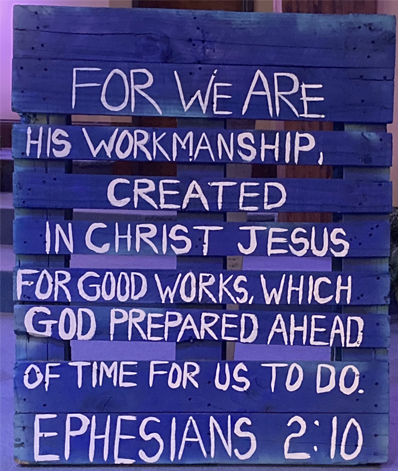 FOR WE ARE
HIS WORKMANSHIP,
CREATED
IN CHRIST JESUS
FOR GOOD WORKS, WHICH
GOD PREPARED AHEAD
OF TIME FOR US TO DO.
EPHESIANS 2:10